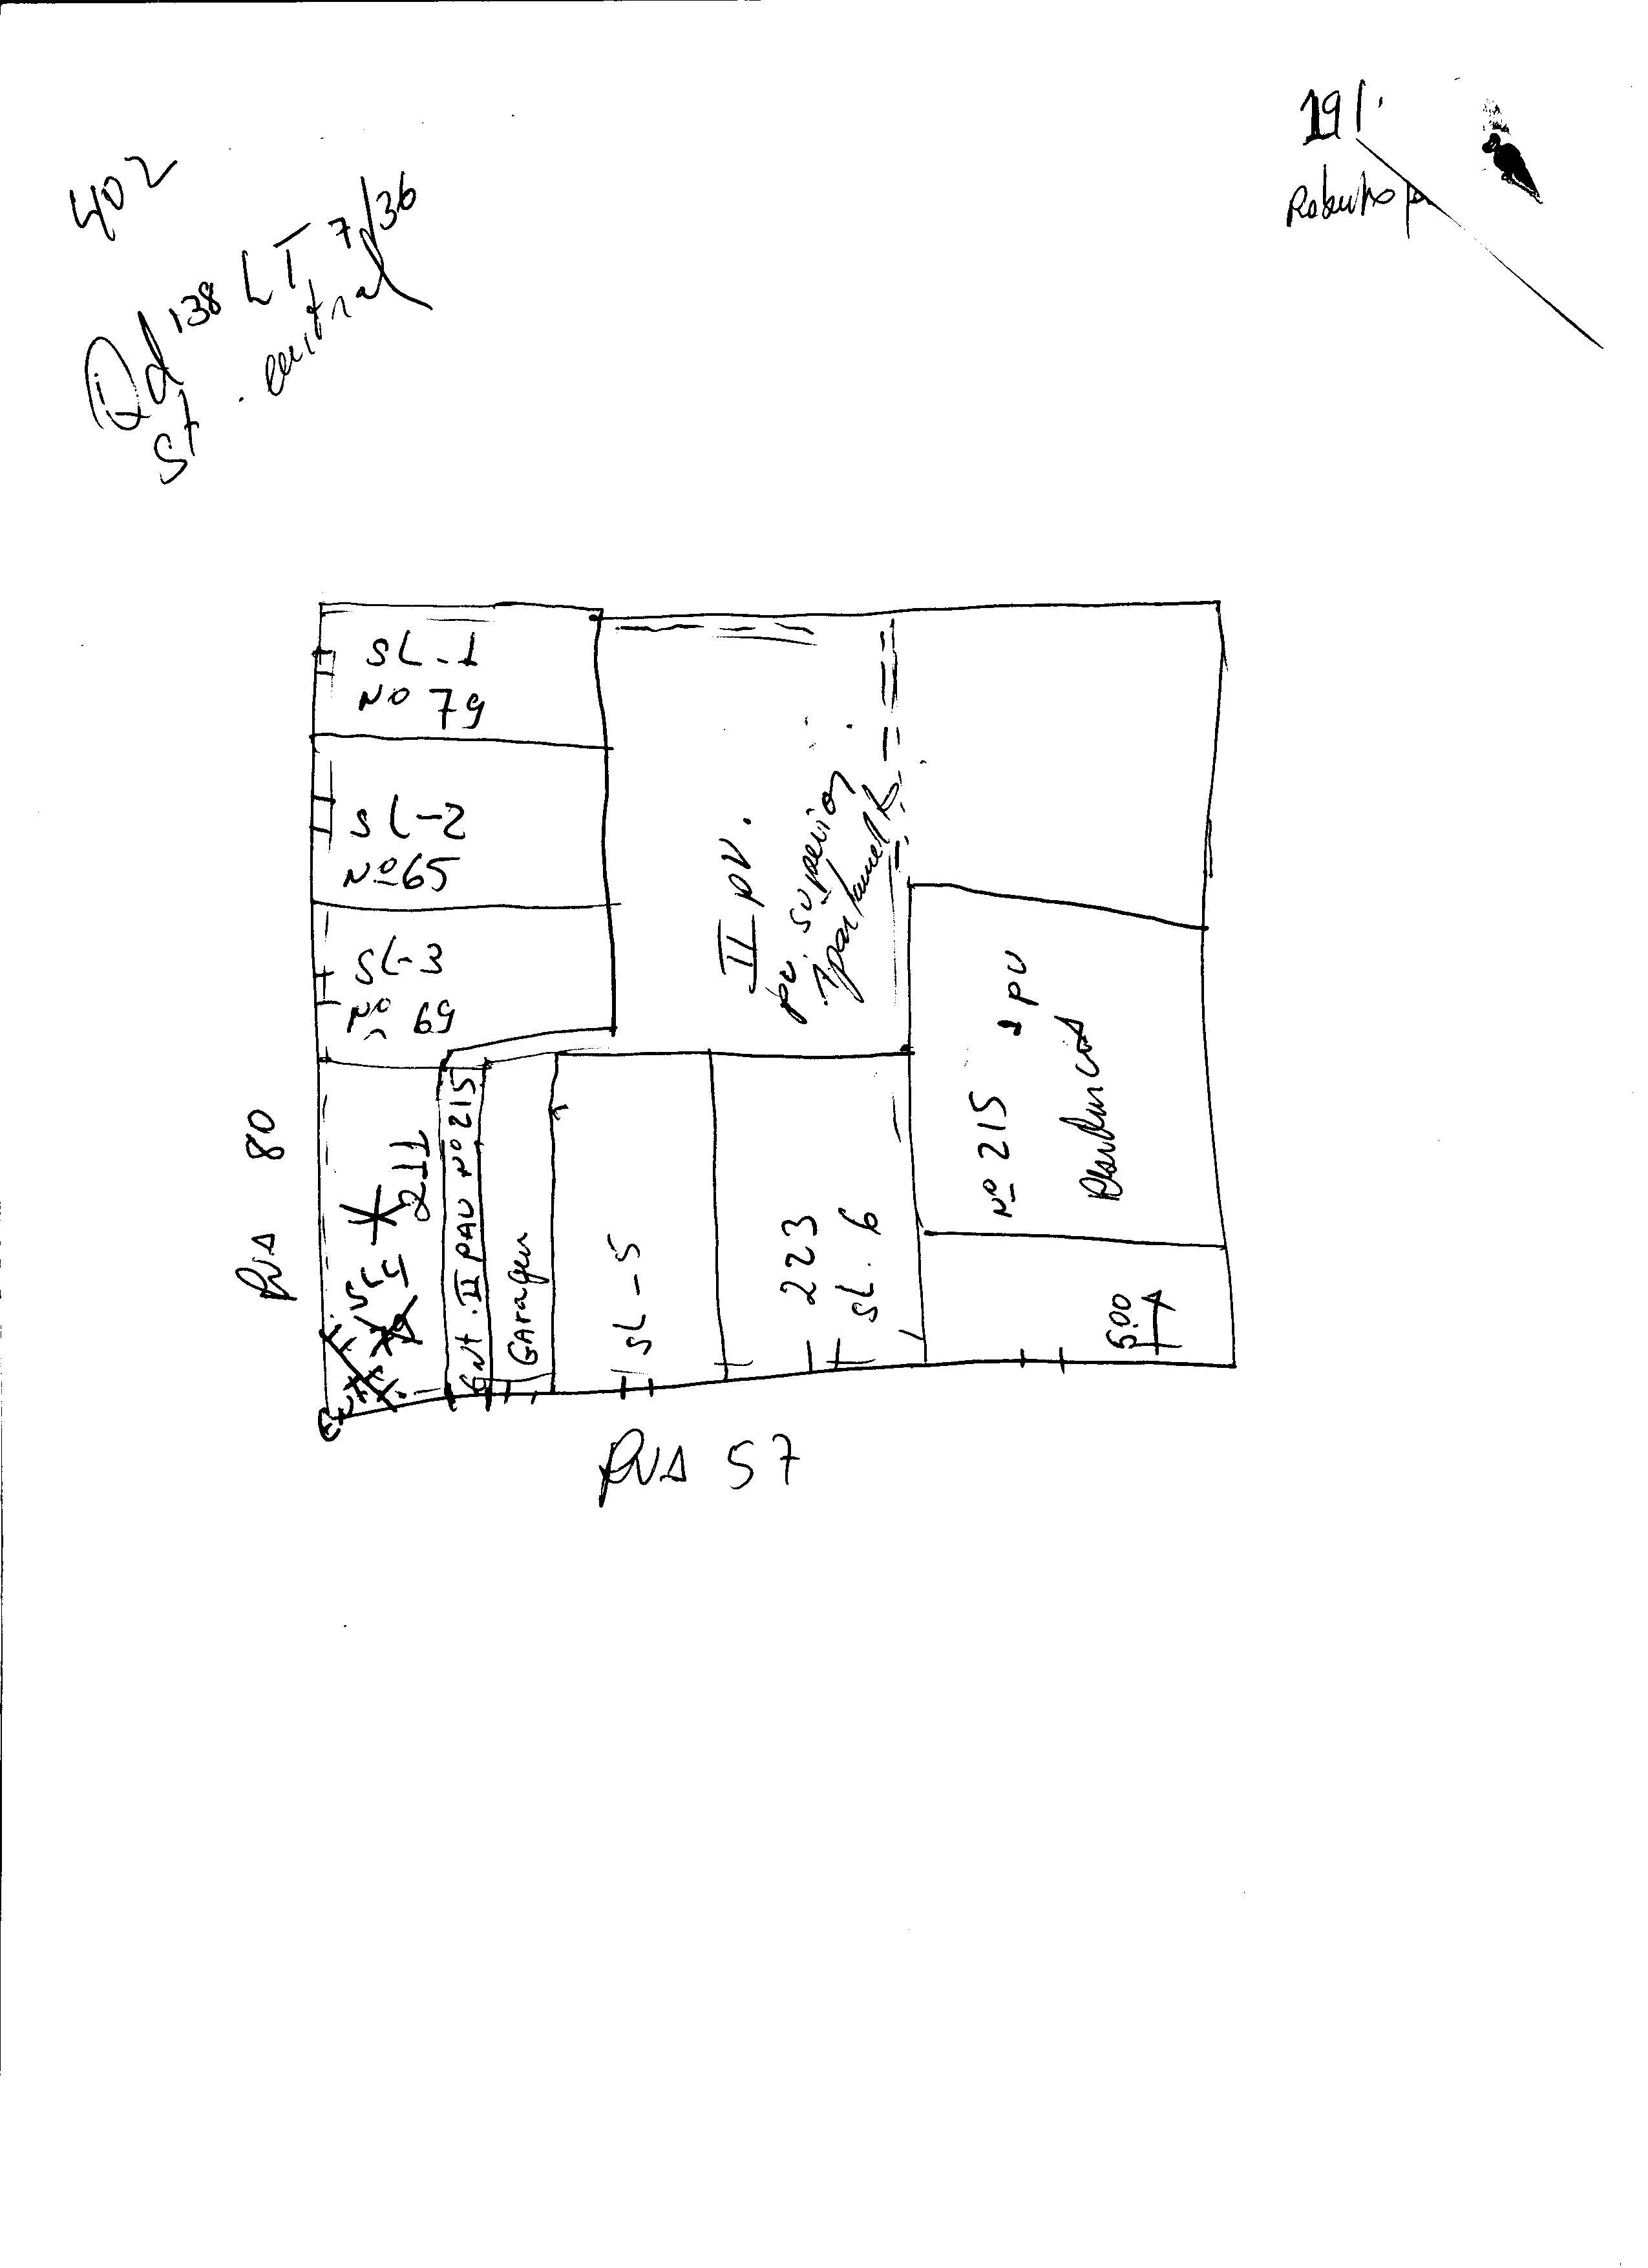 402
Qd 138 LT 7/36
St. central
191.
SL-1
Nº 79
SL-2
Nº 65
SL-3
Nº 69
II pv.
pv. superior
RUA 80
SL4
211
Ent. II PAV Nº 215
Garagem
SL-5
223
SL. 6
Nº 215 1 pv
Residencia
5.00
RUA 57